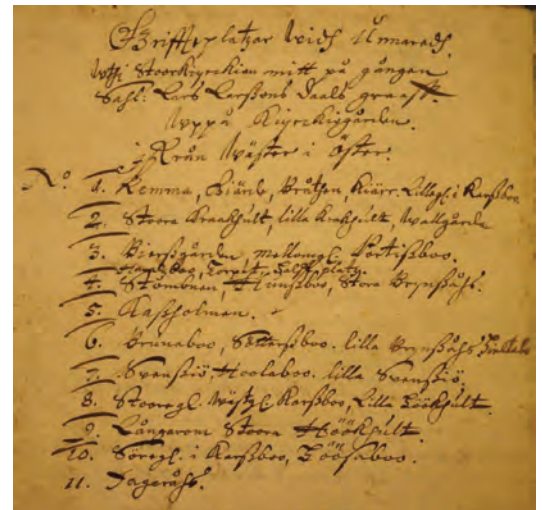 Grifftplatzar widh Unnaradh.
Uthi Stoorkiyrckian mitt på gången
Sahl: Lars Larßons Daals graaf.
Uppå Kiyrckiogården.
Från Wäster i Öster.
No 1. Remma, Biärdh, Bråthen, Kiärr. Lillegl. i Karßboo
2. Stoora Kraakhult, lilla Krakhult, Wallgården
3. Bierßgården, mellomgl. Fortißboo.
Torpet, halff platz.
4. Stombnen, Hunßboo, Stora Brynßåhs.
5. Kaßholmen.
6. Brunaboo, Settarßboo. lilla Brynßåhs
7. Svenßiö, Hoolaboo. lilla Svenßiö,
8. Stooregl. Wästgl. Karßboo, Lilla Höökhult.
9. Långarom Stoora Höökhult.
10. Söregl. i Karßboo, Göösaboo.
11. Fageråhs.